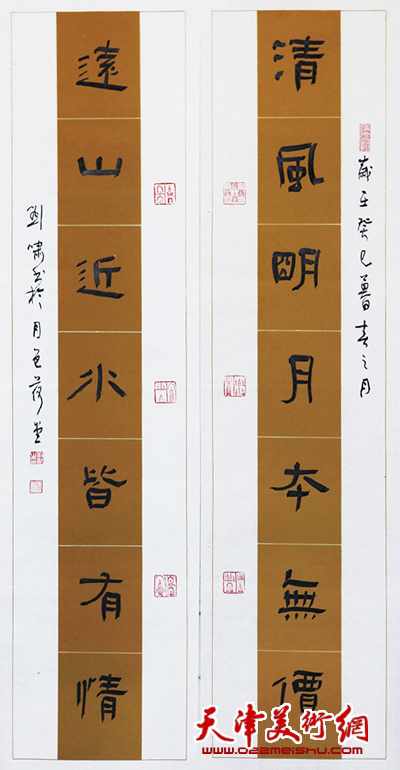 清風明月本無價
歲在癸巳暮春之月
遠山近水皆有情
劉嘯書於月色堂
天津美術網
www.022meishu.com